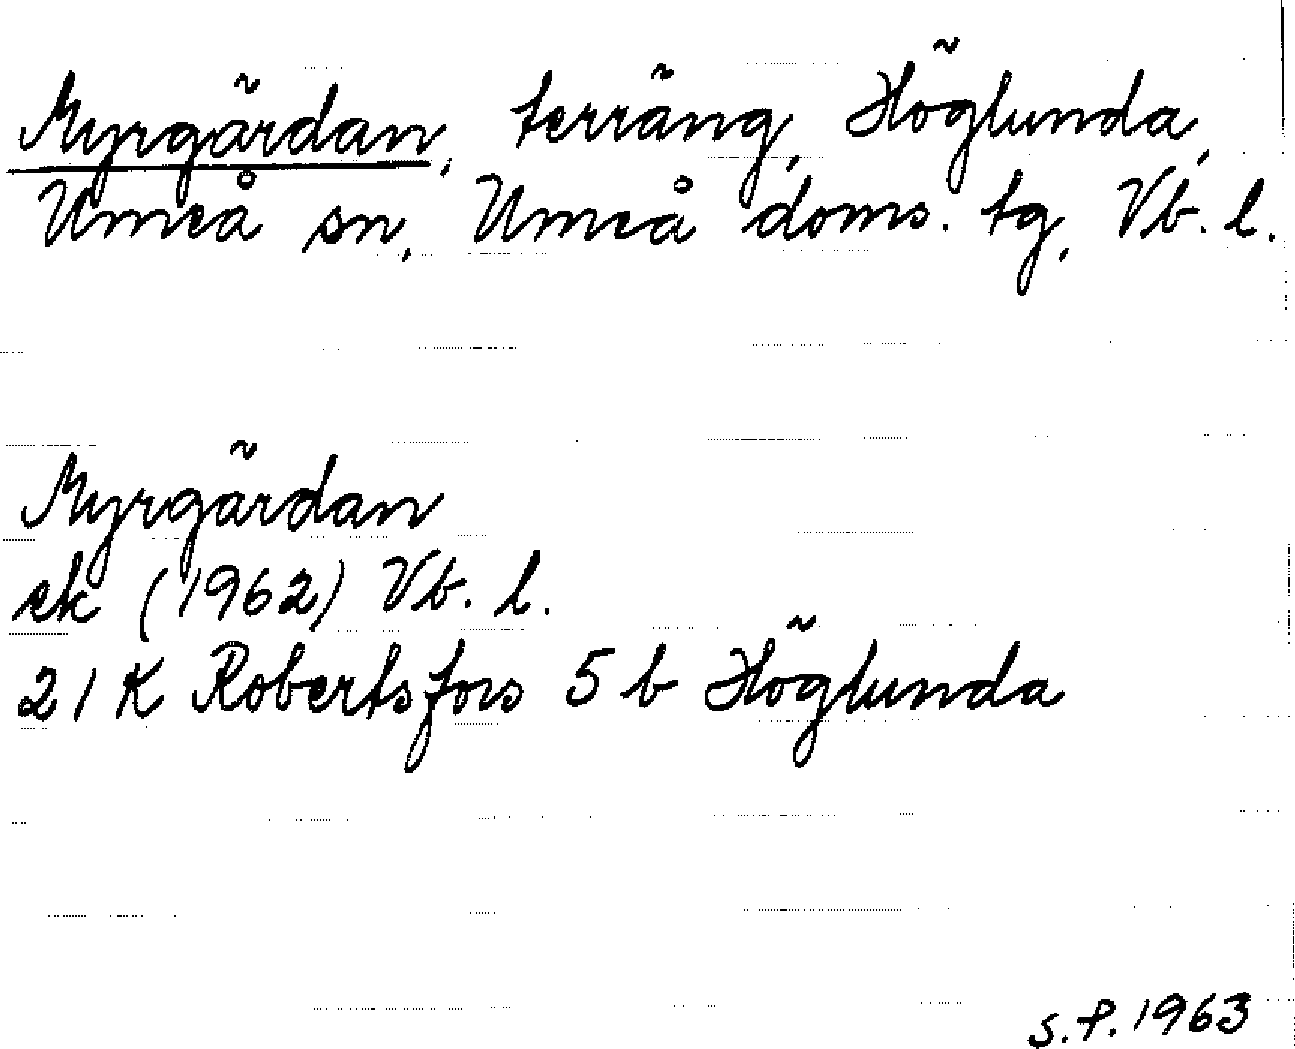 Myrgärdan, terräng, Höglunda,
Umeå sn, Umeå doms. tg, Vb. l.
Myrgärdan
ek (1962) Vb. l.
21 K Robertsfors 5 b Höglunda
S.P. 1963